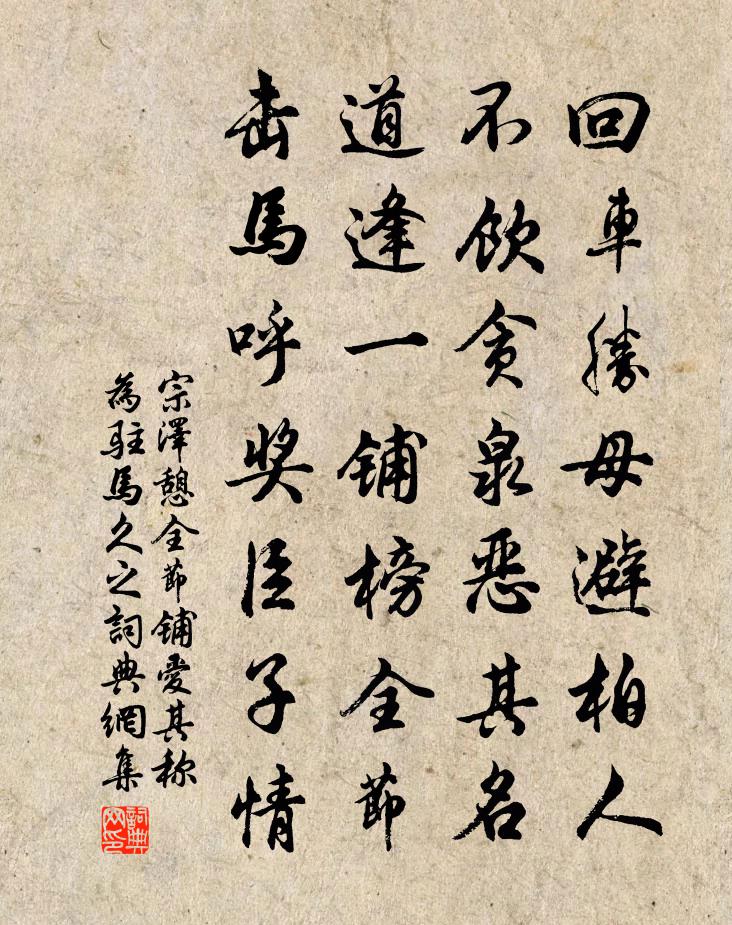 回車勝母避柏人
不飲貪泉恶其名
道逢一鋪榜全節
击馬呼奖臣子情
宗澤憩全節鋪愛其称
為駐馬久之詞典網集
詞典网印